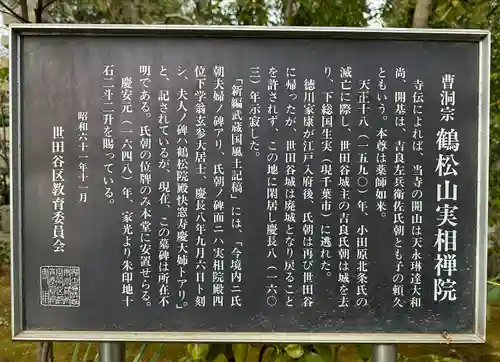 曹洞宗 鶴松山実相禅院
寺伝によれば、当寺の開山は天永琳達大和
尚、開基は、吉良左兵衛佐氏朝とも子の頼久
ともいう。本尊は薬師如来。
天正十八(一五九〇)年、小田原北条氏の
滅亡に際し、世田谷城主の吉良氏朝は城を去
り、下総国生実(現千葉市)に逃れた。
徳川家康が江戸入府後、氏朝は再び世田谷
に帰ったが、世田谷城は廃城となり戻ること
を許されず、この地に閑居し慶長八(一六〇
三)年示寂した。
「新編武蔵国風土記稿」には、「今境内ニ氏
朝夫婦ノ碑アリ、氏朝ノ碑面ニハ実相院殿四
位下学翁玄参大居士、慶長八年九月六日ト刻
シ、夫人ノ碑ハ鶴松院殿快窓寿慶大姉トアリ。」
と、記されているが、現在、この墓碑は所在不
明である。氏朝の位牌のみ本堂に安置せらる。
慶安元(一六四八)年、家光より朱印地十
石二斗二升を賜っている。
昭和六十一年十一月
世田谷区教育委員会